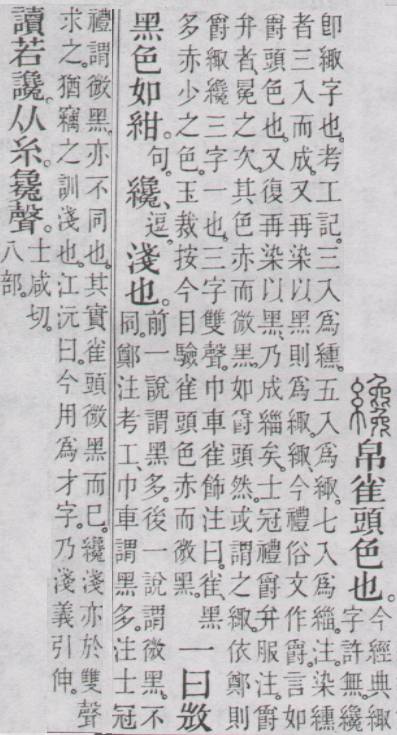 纔帛雀頭色也。今經典緅
字許無纔
卽緅字也。考工記。三入爲纁。五入爲緅。七入爲緇。注。染纁
者三入而成。又再染以黑則爲緅。緅今禮俗文作爵。言如
爵頭色也。又復再染以黑、乃成緇矣。士冠禮爵弁服注。爵
弁者、冕之次。其色赤而微黑。如爵頭然。或謂之緅。依鄭則
爵緅纔三字一也。三字雙聲。巾車雀飾注曰。雀、黑
多赤少之色。玉裁按今目驗雀頭色赤而微黑。
一曰𢼸
黑色如紺。句。纔、逗。淺也。
前一說謂黑多。後一說謂微黑。不
同。鄭注考工、巾車謂黑多。注士冠
禮謂微黑。亦不同也。其實雀頭微黑而已。纔淺亦於雙聲
求之。猶竊之訓淺也。江沅曰。今用爲才字。乃淺義引伸。
讀若讒。从糸毚聲。士咸切。
八部。